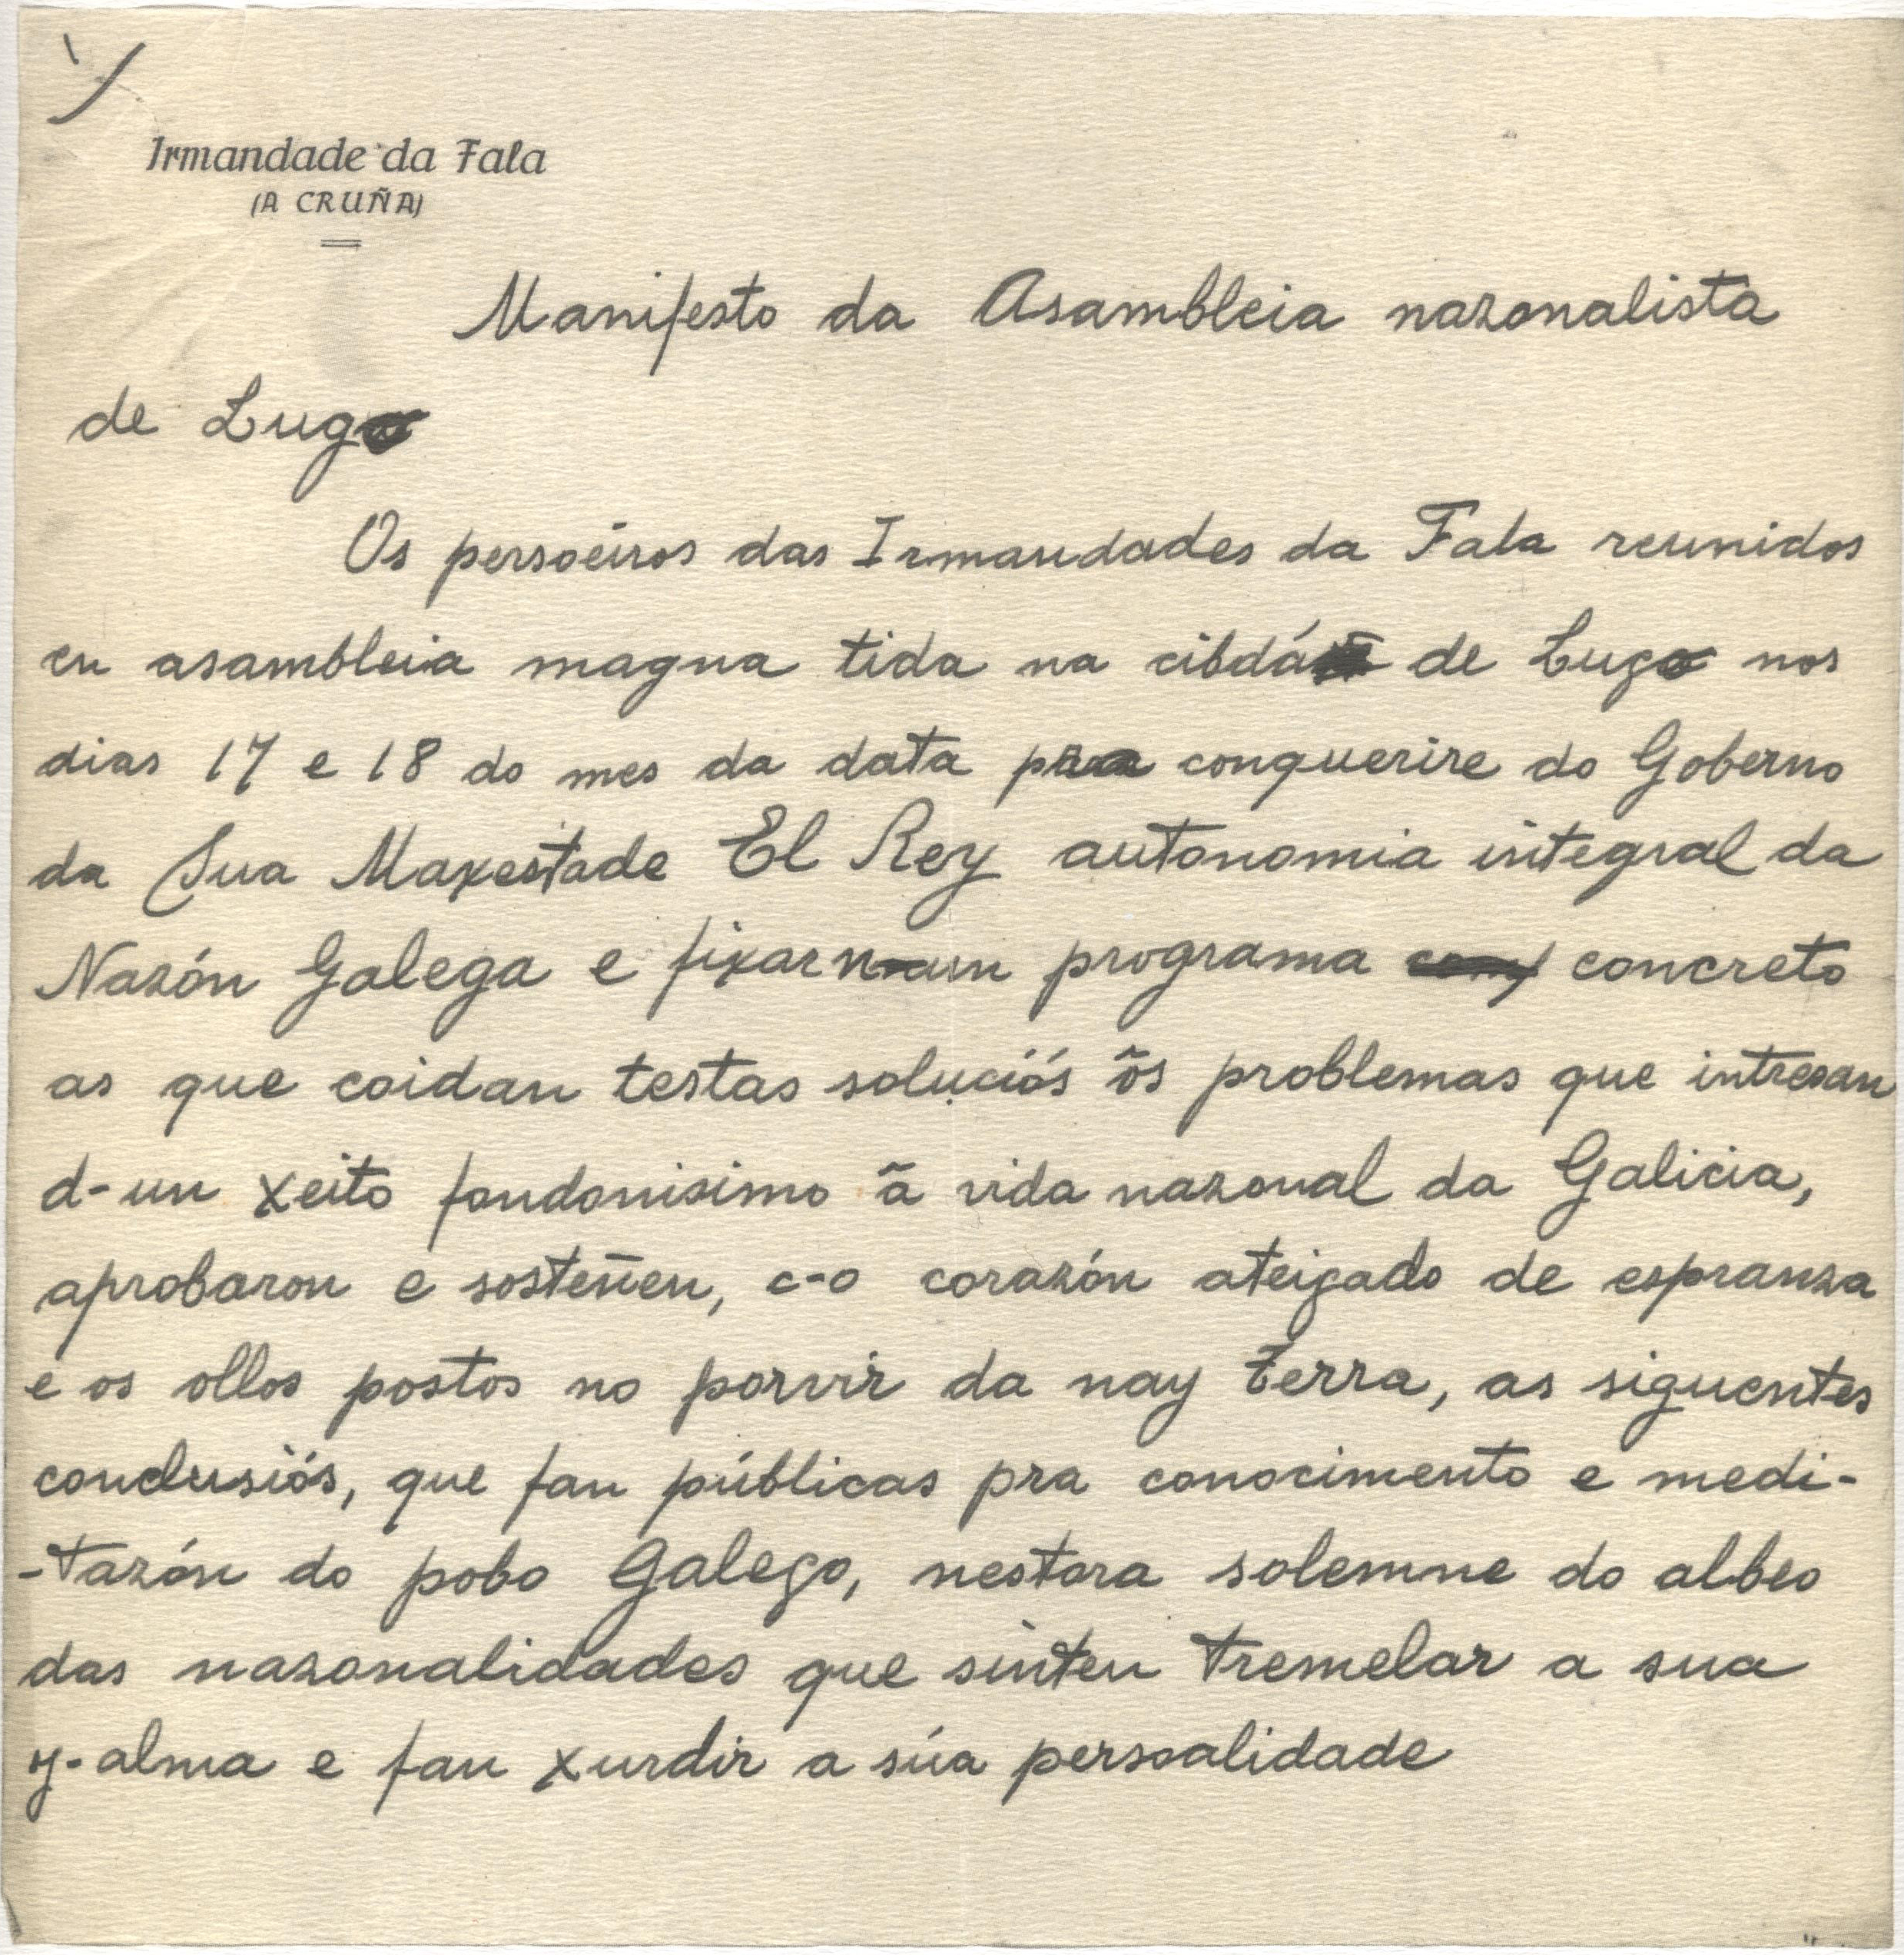 Irmandade da Fala
(A CRUÑA)
Manifesto da Asambleia nazonalista
de Lugo
Os persoeiros das Irmandades da Fala reunidos
en asambleia magna tida na cibdá de Lugo nos
dias 17 e 18 do mes da data pra conquerire do Goberno
da Sua Maxestade El Rey autonomia integral da
Nazón Galega e fixar n-un programa concreto
as que coidan testas soluciós õs problemas que intresan
d-un xeito fondonisimo ã vida nazonal da Galicia,
aprobaron eosteñen, c-o corazón ateigado de espranza
e os ollos postos no porvir da nay Terra, as siguentes
conclusiós, que fan públicas pra conocimento e medi-
-tazón do pobo Galego, nestora solemne do albeo
das nazonalidades que sinten tremelar a sua
y-alma e fan xurdir a súa persoalidade